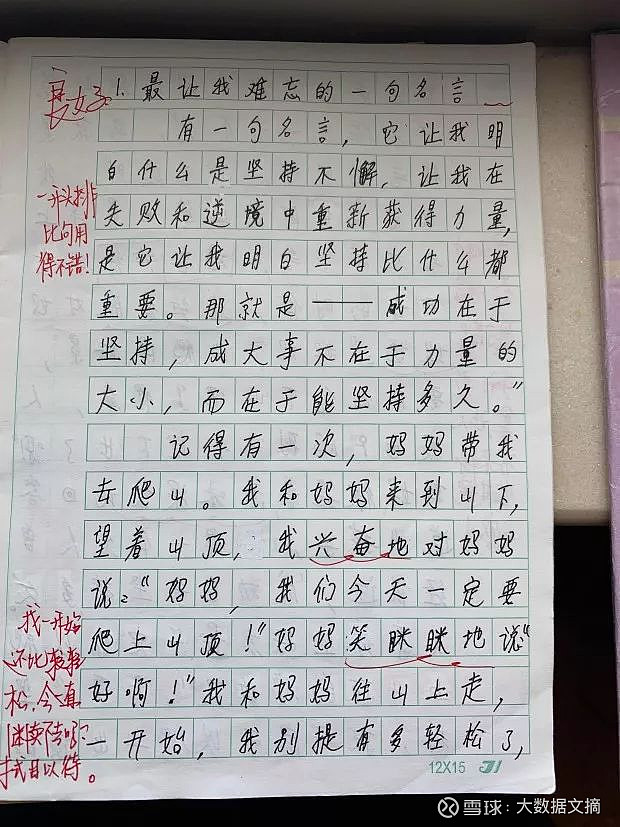 良好
1. 最让我难忘的一句名言
有一句名言，它让我明
白什么是坚持不懈，让我在
失败和逆境中重新获得力量，
是它让我明白坚持比什么都
重要。那就是——成功在于
坚持，成大事不在于力量的
大小，而在于能坚持多久。”
记得有一次，妈妈带我
去爬山。我和妈妈来到山下，
望着山顶，我兴奋地对妈妈
说：“妈妈，我们今天一定要
爬上山顶！”妈妈笑眯眯地说“
好啊！”我和妈妈往山上走，
一开始，我别提有多轻松了，
一开头排
比句用
得不错！
我一开始
还比较轻
松，今真
拭目以待。
12X15
雪球：大数据文摘